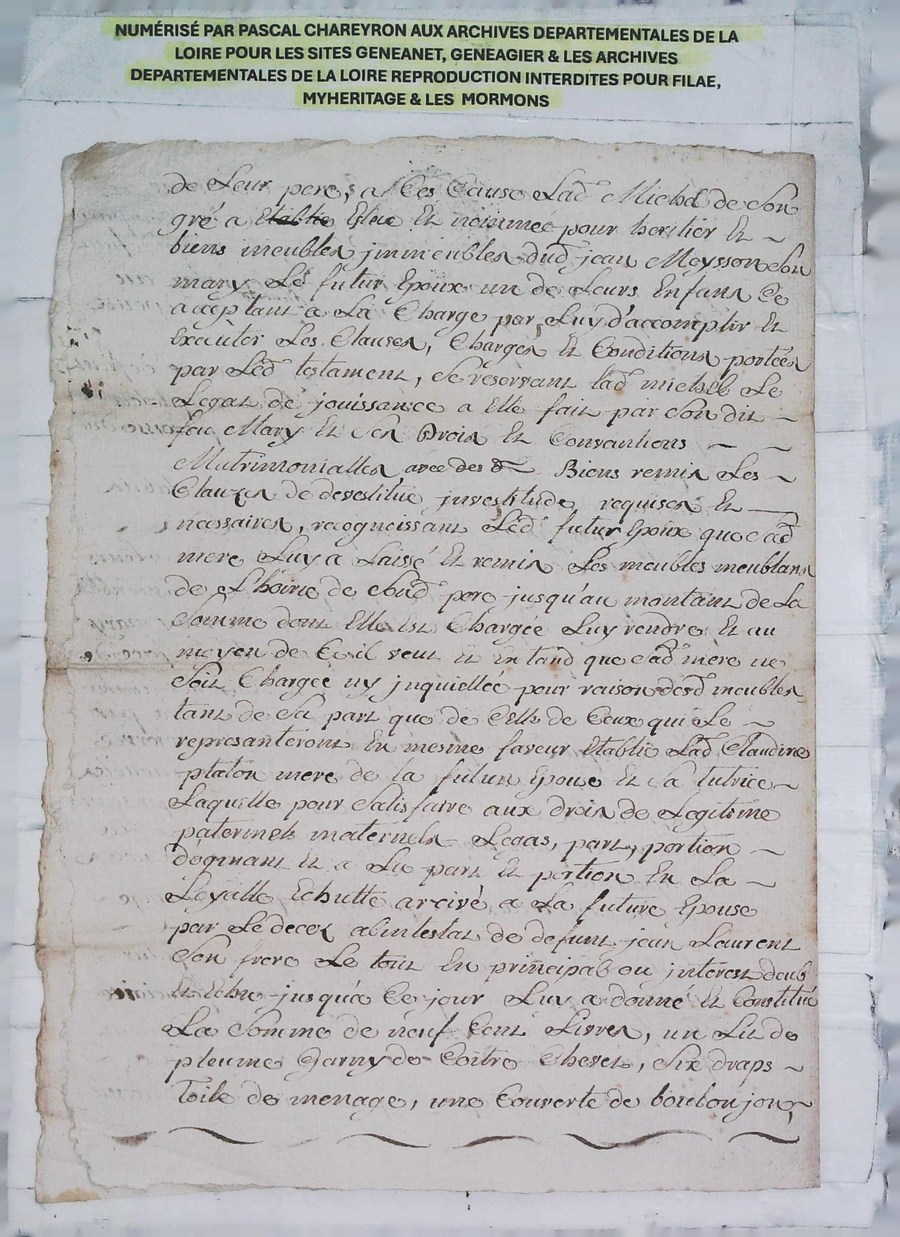 NUMÉRISÉ PAR PASCAL CHAREYRON AUX ARCHIVES DEPARTEMENTALES DE LA
LOIRE POUR LES SITES GENEANET, GENEAGIER & LES ARCHIVES
DEPARTEMENTALES DE LA LOIRE REPRODUCTION INTERDITES POUR FILAE,
MYHERITAGE & LES MORMONS
de Leur pere, a Ces Cause Lad Michel de Son
gré a Elue Et nommée pour heritier Et
biens meubles jmmeubles dud jean Moysson Son
mary Le futur Epoux un de Leurs Enfans Ce
acceptant a La Charge par Luy d'accomplir Et
Executer Les Clauses, Charges Et Conditions portées
par Led testament, Se reservant lad michel Le
Legat de jouissance a Elle fait par Son dit
feu Mary Et Ses Drois Et Conventions
Matrimonialles avec des Biens remis Les
Clauzes de devestitue investitude requises Et
necessaires, recogneissant Led futur Epoux que ad
mere Luy a Laissé Et remis Les meubles meublans
de L'hoirie de Soud pere jusqu'au montant de La
Somme dont Elle Est Chargée Luy rendre Et au
moyen de Ce il veut Et Entand que ad mere ne
Soit Chargée ny jnquiettée pour raison desd meubles
tant de Sa part que de Celle de Ceux qui Le
represanteront En mesme faveur Etablie Lad Claudine
platon mere de la future Epouse Et Sa tutrice
Laquelle pour Satisfaire aux drois de Legitime
paternels maternels Legas, part, portion
d'ogmant Et a La part Et portion En La
Loyalle Echutte arrivé a La future Epouse
par Le decez abintestat de defunt jean Laurent
Son frere Le tout En principal ou interest deub
Et Echu jusqu'a Ce jour Luy a donné Et Constitué
La Somme de neuf Cent Livres, un Lit de
pleume Garny de Coitre Chevet, Six draps
toile de menage, une Couverte de bourlonjon,